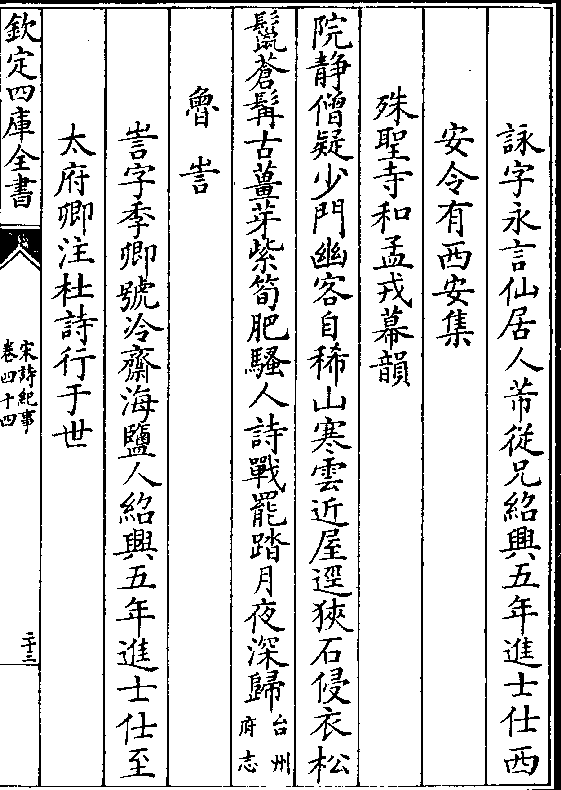 詠字永言仙居人芾從兄紹興五年進士仕西
安令有西安集
殊聖寺和孟戎幕韻
院靜僧疑少門幽客自稀山寒雲近屋逕狹石侵衣松
鬛蒼髯古薑芽紫筍肥騷人詩戰罷踏月夜深歸台州府志
魯訔
訔字季卿號冷齋海鹽人紹興五年進士仕至
太府卿注杜詩行于世
欽定四庫全書
宋詩紀事
卷四十四
二十三